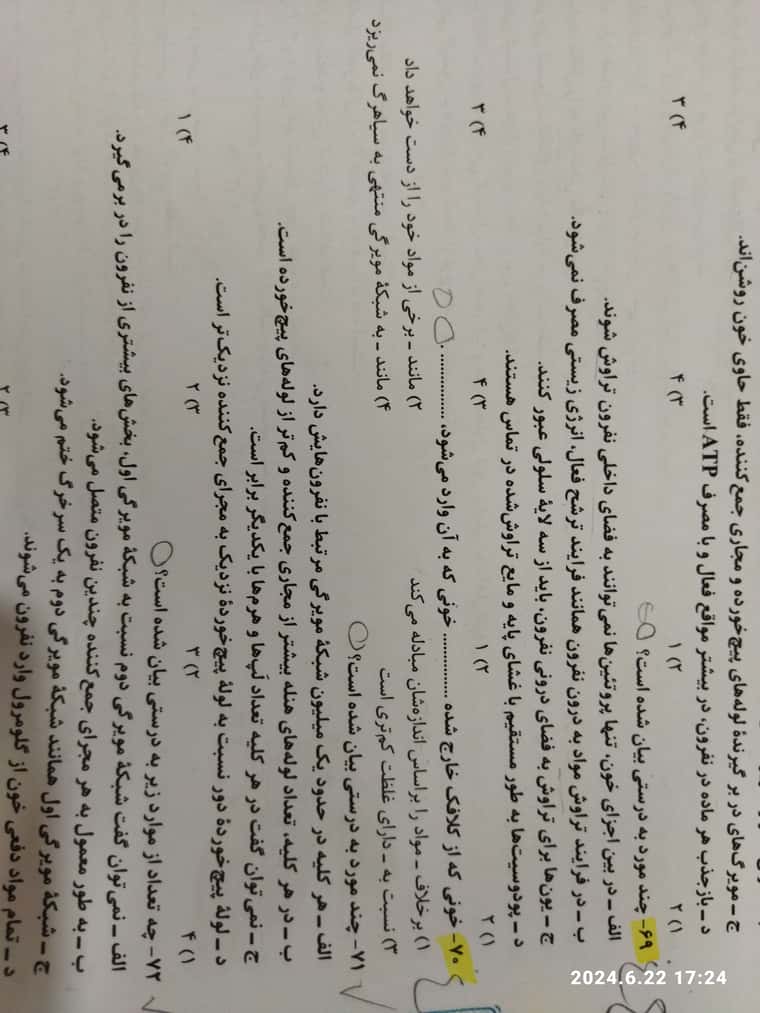 ج ـ مویرگ‌های در بر گیرندهٔ لوله‌های پیچ‌خورده و مجاری جمع‌کننده، فقط حاوی خون روشن‌اند.
د ـ بازجذب هر ماده در نفرون، در بیشتر مواقع فعال و با مصرف ATP است.
۱) ۲ ۲) ۱ ۳) ۴ ۴) ۳
۶۹- چند مورد به درستی بیان شده است؟
الف ـ در بین اجزای خون، تنها پروتئین‌ها نمی‌توانند به فضای داخلی نفرون تراوش شوند.
ب ـ در فرایند تراوش مواد به درون نفرون همانند فرایند ترشح فعال، انرژی زیستی مصرف نمی‌شود.
ج ـ یون‌ها برای تراوش به فضای درونی نفرون، باید از سه لایهٔ سلولی عبور کنند.
د ـ پودوسیت‌ها به طور مستقیم با غشای پایه و مایع تراوش‌شده در تماس هستند.
۱) ۲ ۲) ۱ ۳) ۴ ۴) ۳
۷۰- خونی که از کلافک خارج شده ............... خونی که به آن وارد می‌شود، ............... .
۱) برخلاف ـ مواد را براساس اندازه‌شان مبادله می‌کند ۲) مانند ـ برخی از مواد خود را از دست خواهد داد
۳) نسبت به ـ دارای غلظت کم‌تری است ۴) مانند ـ به شبکهٔ مویرگی منتهی به سیاهرگ نمی‌ریزد
۷۱- چند مورد به درستی بیان شده است؟
الف ـ هر کلیه در حدود یک میلیون شبکهٔ مویرگی مرتبط با نفرون‌هایش دارد.
ب ـ در هر کلیه، تعداد لوله‌های هنله بیشتر از مجاری جمع‌کننده و کم‌تر از لوله‌های پیچ‌خورده است.
ج ـ نمی‌توان گفت در هر کلیه تعداد لَپ‌ها و هرم‌ها با یکدیگر برابر است.
د ـ لولهٔ پیچ‌خوردهٔ دور نسبت به لولهٔ پیچ‌خوردهٔ نزدیک به مجرای جمع‌کننده نزدیک‌تر است.
۱) ۴ ۲) ۳ ۳) ۲ ۴) ۱
۷۲- چه تعداد از موارد زیر به درستی بیان شده است؟
الف ـ نمی‌توان گفت شبکهٔ مویرگی دوم نسبت به شبکهٔ مویرگی اول، بخش‌های بیشتری از نفرون را در بر می‌گیرد.
ب ـ به طور معمول به هر مجرای جمع‌کننده چندین نفرون متصل می‌شود.
ج ـ شبکهٔ مویرگی اول همانند شبکهٔ مویرگی دوم به یک سرخرگ ختم می‌شود.
د ـ تمام مواد دفعی خون از گلومرول وارد نفرون می‌شوند.
۳) ۲ ۴) ۳
2024.6.22 17:24